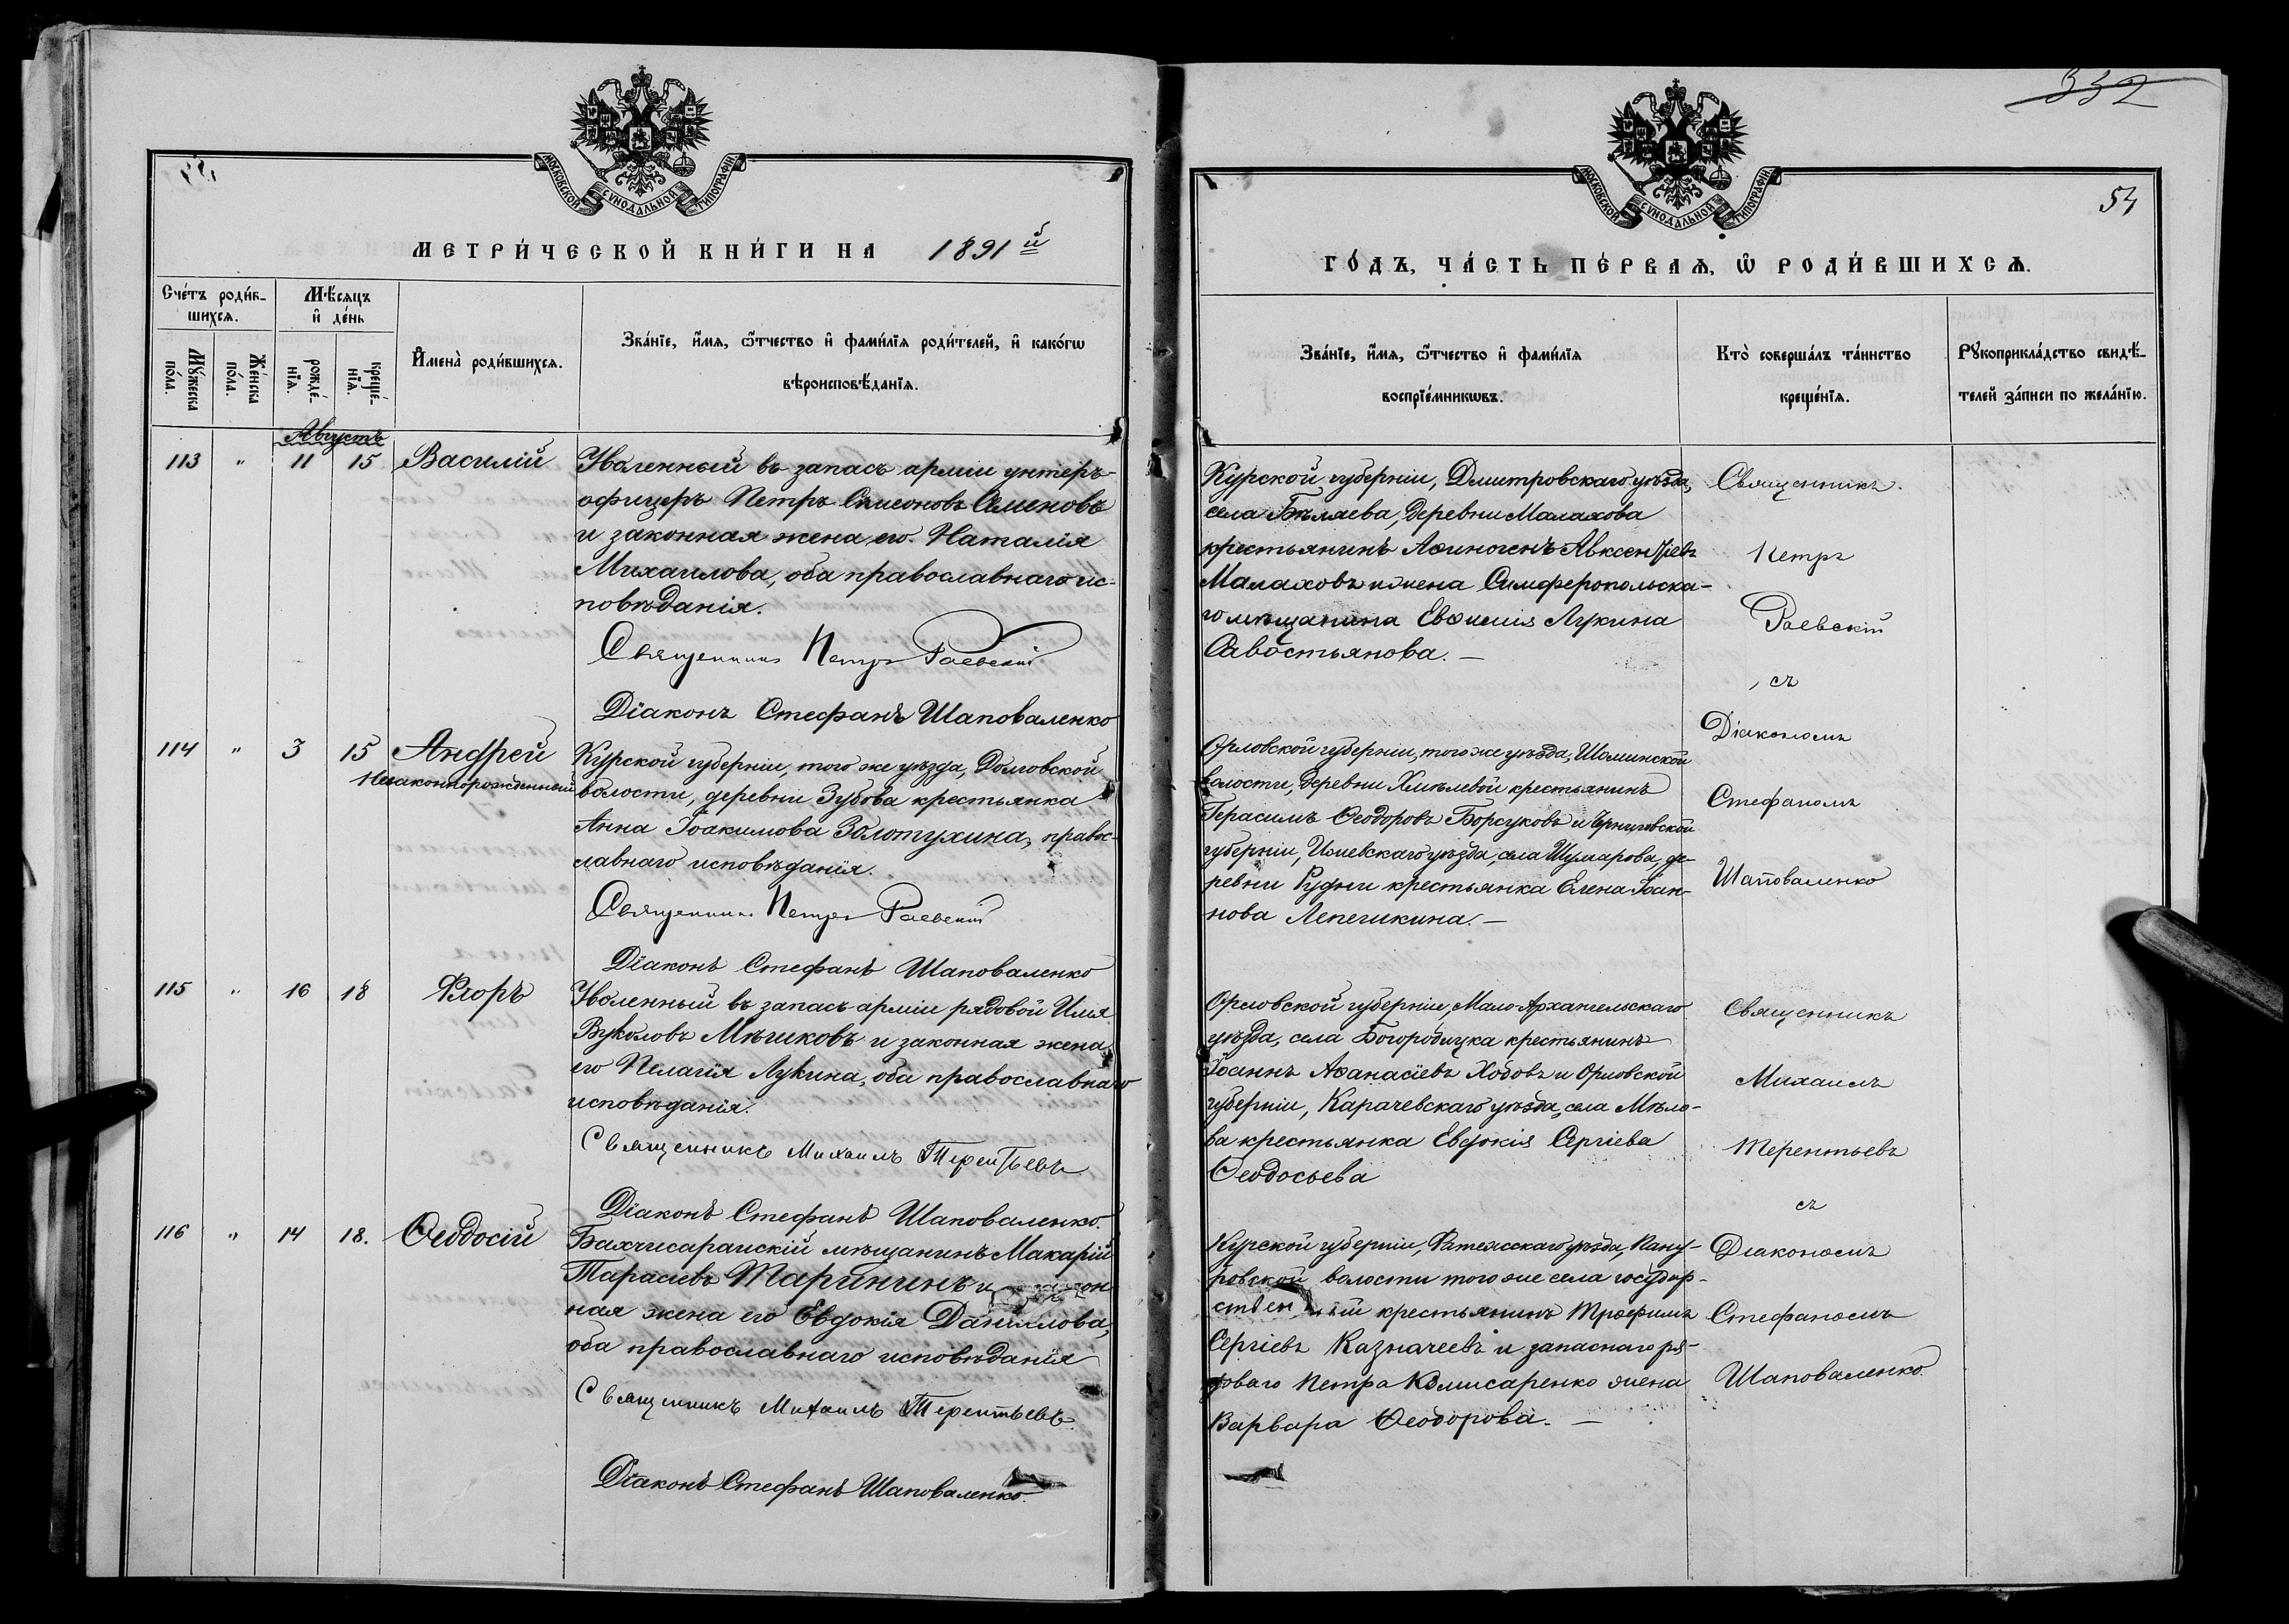 МОСКОВСКОЙ СѴНОДАЛЬНОЙ ТИПОГРАФІИ
МЕТРИ́ЧЕСКОЙ КНИ́ГИ НА 1891й
Сче́тъ роди́вшихсѧ.
Мѣ́сяцъ и҆ де́нь
И҆мена̀ роди́вшихсѧ.
Зва́нїе, и҆́мѧ, ѻ҆́тчество и҆ фами́лїѧ роди́телей, и҆ како́гѡ
вѣроисповѣ́данїѧ.
Мꙋ́жеска по́ла.
Же́нска по́ла.
рожде́нїѧ.
креще́нїѧ.
Августъ
113 " 11 15 Василій
Уволенный въ запасъ арміи унтеръ-
офицеръ Петръ Симеоновъ Семеновъ
и законная жена его Наталія
Михаилова, оба православнаго ис-
повѣданія.
Священникъ Петръ Раевскій
Діаконъ Стефанъ Шаповаленко
114 " 3 15 Андрей
Незаконнорожденный
Курской губерніи, того же уѣзда, Долговской
волости, деревни Зубова крестьянка
Анна Іоакимова Золотухина, правос-
лавнаго исповѣданія.
Священникъ Петръ Раевскій
Діаконъ Стефанъ Шаповаленко
115 " 16 18 Флоръ
Уволенный въ запасъ арміи рядовой Илья
Вуколовъ Мѣшковъ и законная жена
его Пелагія Лукина, оба православнаго
исповѣданія.
Священникъ Михаилъ Терентьевъ
Діаконъ Стефанъ Шаповаленко.
116 " 14 18. Ѳеодосій
Бахчисарайскій мѣщанинъ Макарій
Тарасіевъ Тарининъ и закон-
ная жена его Евдокія Даниилова,
оба православнаго исповѣданія
Священникъ Михаилъ Терентьевъ.
Діаконъ Стефанъ Шаповаленко.
332
54
МОСКОВСКОЙ СѴНОДАЛЬНОЙ ТИПОГРАФІИ
ГО́ДЪ, ЧА́СТЬ ПЕ́РВАѦ, Ѡ҆ РОДИ́ВШИХСѦ.
Зва́нїе, и҆́мѧ, ѻ҆́тчество и҆ фами́лїѧ
воспрїе́мникѡвъ.
Кто̀ соверша́лъ та́инство
креще́нїѧ.
Рꙋкоприкла́дство свидѣ́-
телей за́писи по жела́нїю.
Курской губерніи, Дмитровскаго уѣзда,
села Бѣляева, деревни Малахова
крестьянинъ Аѳиногенъ Авксентіевъ
Малаховъ и жена Симферопольска-
го мѣщанина Евѳимія Лукина
Савостьянова. —
Священникъ
Петръ
Раевскій
съ
Діакономъ
Стефаномъ
Шаповаленко
Орловской губерніи, того же уѣзда, Шаминской
волости, деревни Хмѣлевой крестьянинъ
Герасимъ Ѳеодоровъ Борсуковъ и Черниговской
губерніи, уѣзда, села Шумарова, де-
ревни Рудни крестьянка Елена Іоан-
нова Лепешкина. —
Орловской губерніи, Мало Архангельскаго
уѣзда, села Богородицка крестьянинъ
Іоаннъ Аѳанасіевъ Ходовъ и Орловской
губерніи, Карачевскаго уѣзда, села Мѣло-
ва крестьянка Евдокія Сергіева
Ѳеодосьева
Священникъ
Михаилъ
Терентьевъ
съ
Діакономъ
Стефаномъ
Шаповаленко.
Курской губерніи, Фатежскаго уѣзда, Кану-
ровской волости того же села государ-
ственный крестьянинъ Трофимъ
Сергіевъ Казначеевъ и запаснаго ря-
доваго Петра Комисаренко жена
Варвара Ѳеодорова. —